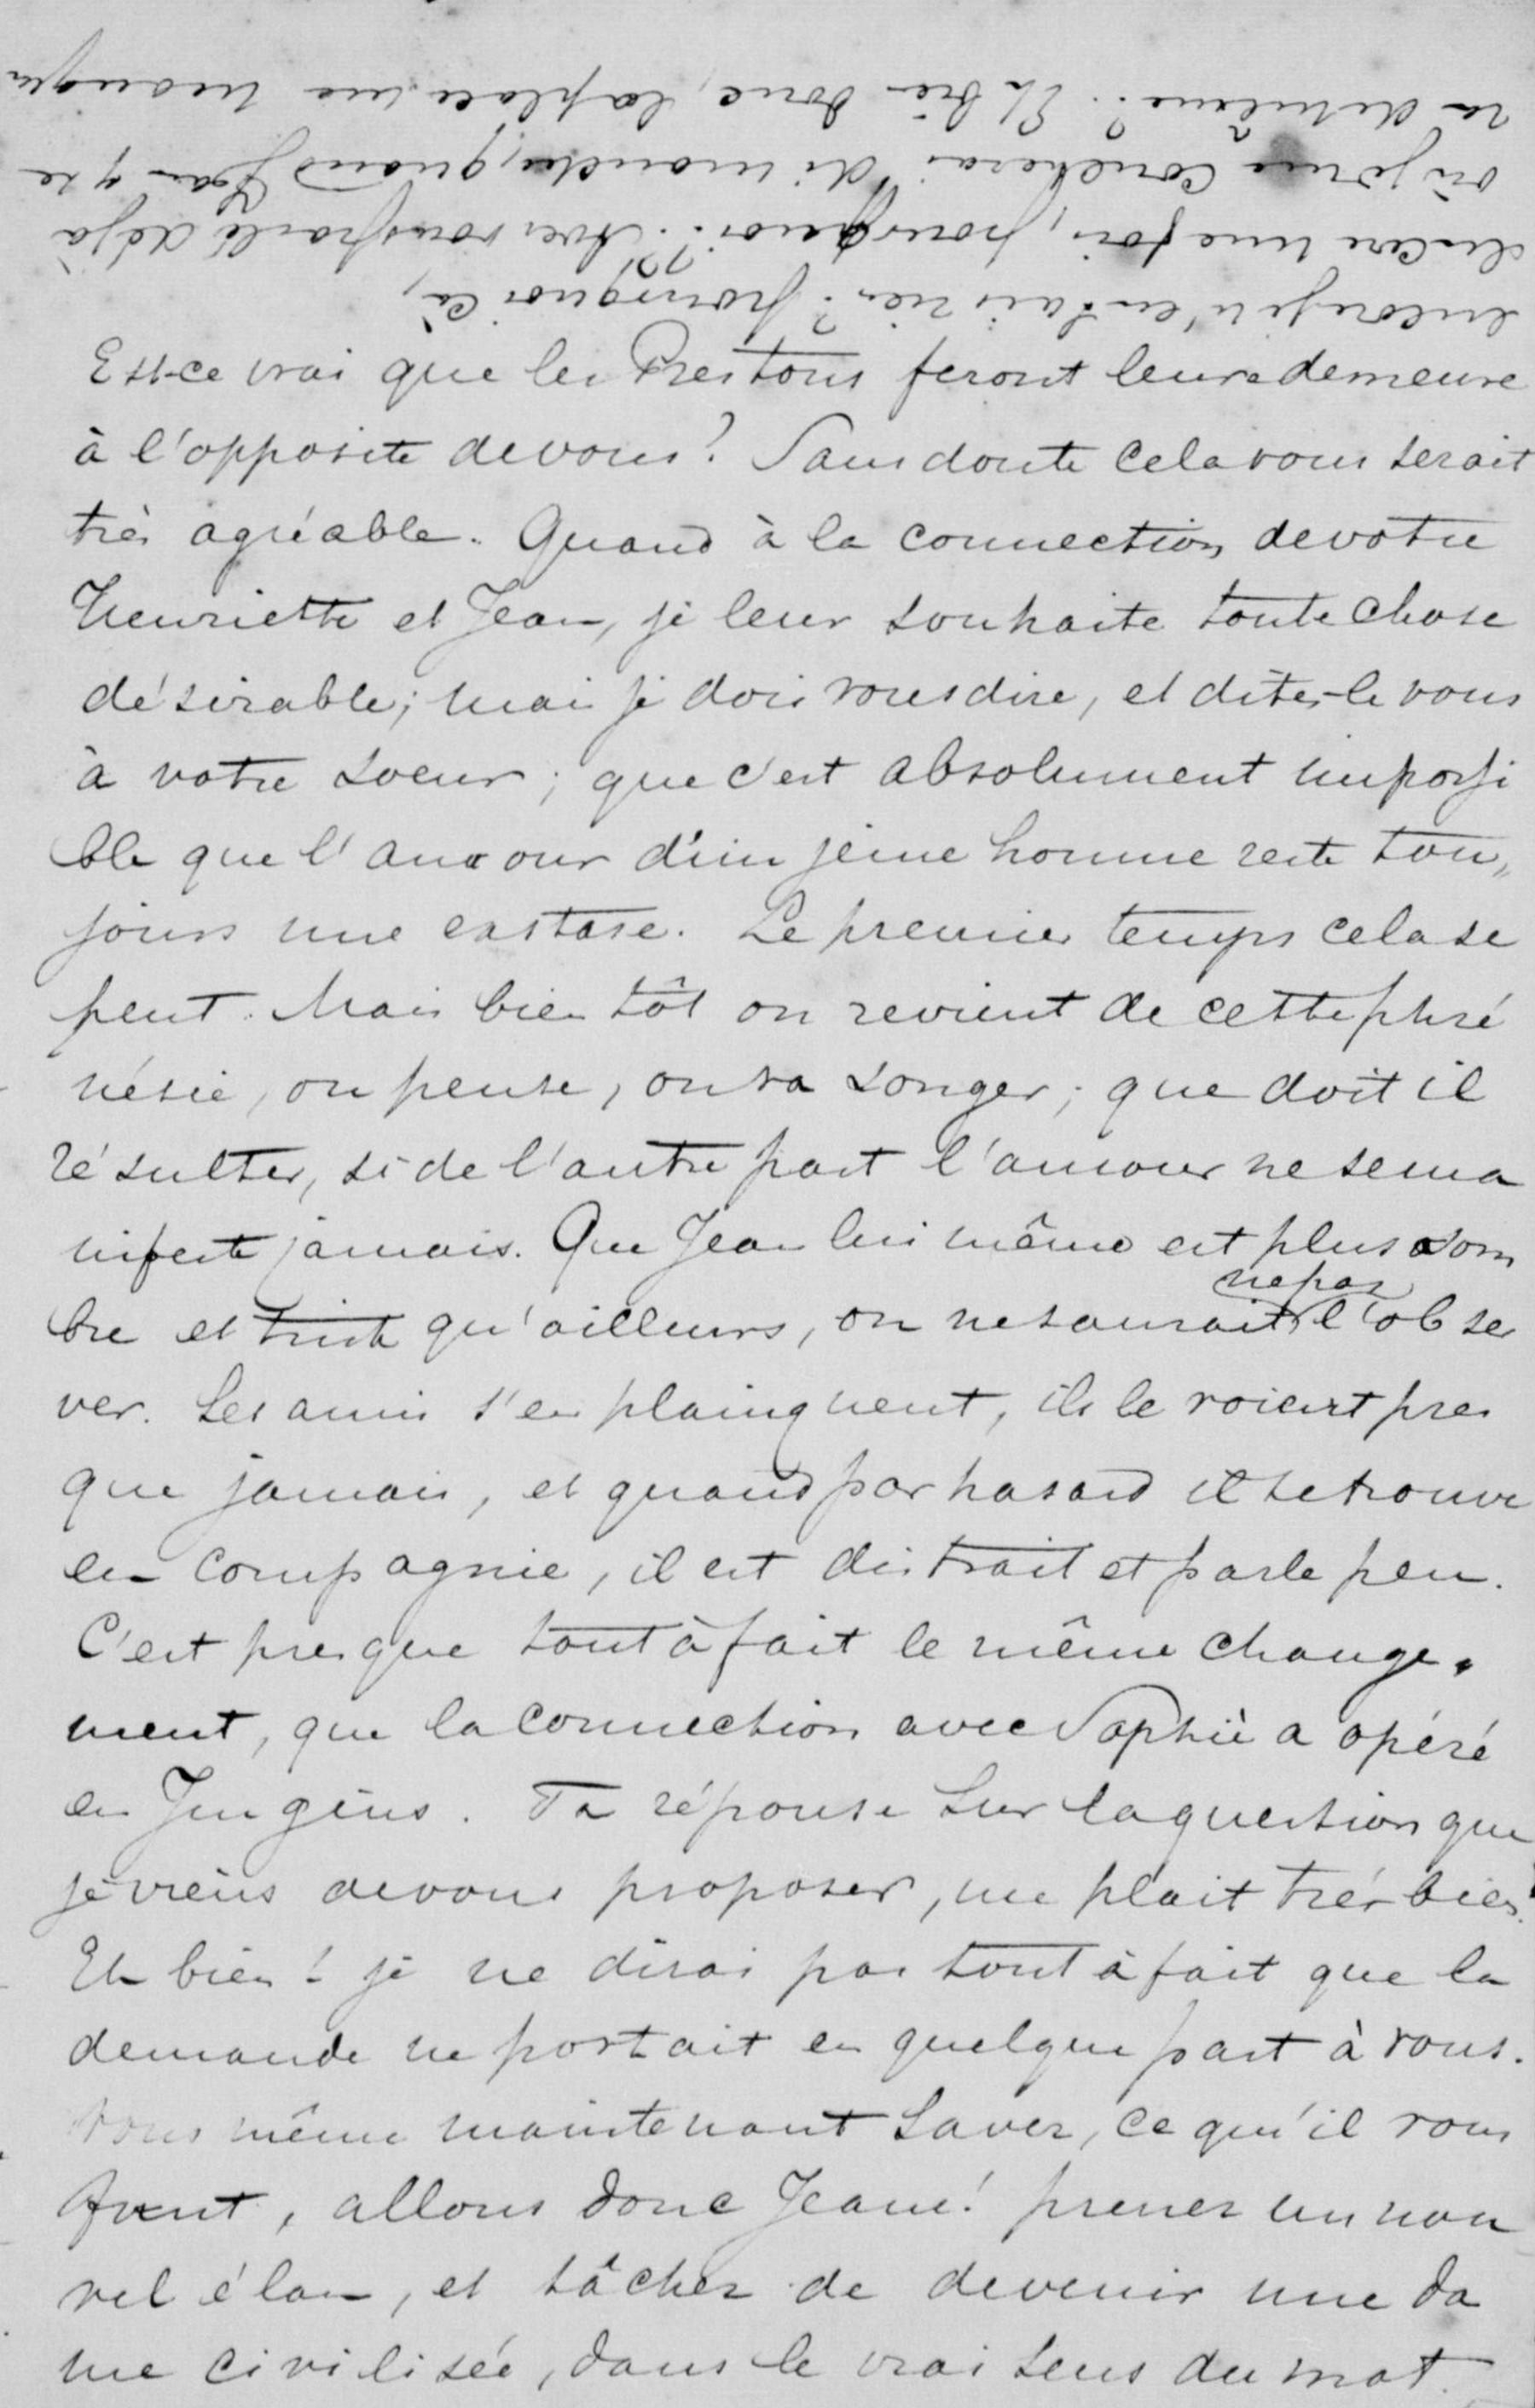 Est-ce vrai que les Prestons feront leure demeure
à l'opposite de vous? Sans doute cela vous serait
très agréable. Quand à la connection de votre
Henriette et Jean, je leur souhaite toute chose
désirable; mais je dois vous dire, et dites-le vous
à votre soeur; que c'est absolument impossi
ble que l'amour d'un jeune homme reste tou„
jours une exstase. Le premier temps cela se
peut. Mais bien tôt on revient de cette phré
nésie, on pense, on va songer; que doit il
résulter, si de l'autre part l'amour ne se ma
nifeste jamais. Que Jean lui même est plus som
bre et triste qu'ailleurs, on ne saurait ne pas l'obser
ver. Les amis s'en plaingnent, ils le voient pres
que jamais, et quand par hasard il se trouve
en compagnie, il est distrait et parle peu.
C'est presque tout à fait le même change.
ment, que la connection avec Sophie a opéré
en Jungius. Ta réponse sur la question que
je viens de vous proposer, me plait très bien.
Eh bien! je ne dirai pas tout à fait que la
demande ne portait en quelque part à vous.
Vous même maintenant savez, ce qu'il vous
faut, allons donc Jeanne! prenez un nou
vel élan, et tâchez de devenir une da
me civilisée, dans le vrai sens du mot.
encore je n'en sais rien? pourquoi ça,
encore une fois, pourquoi? Avez vous parlé déjà
où je me coucherai dimanche, quand Jean y re
ra de même? Eh bien donc, la place me manque